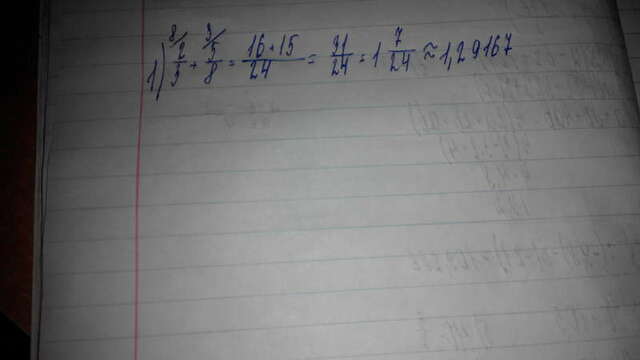 1) 8/ 2/3 + 3/ 5/8 = 16+15/24 = 31/24 = 1 7/24 ≈ 1,29167